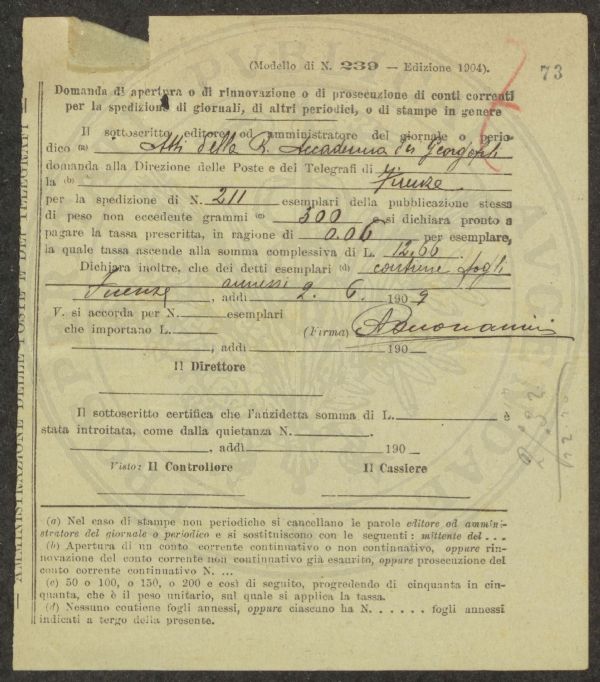 (Modello di N. 239 — Edizione 1904).
73
Domanda di apertura o di rinnovazione o di prosecuzione di conti correnti
per la spedizione di giornali, di altri periodici, o di stampe in genere
Il sottoscritto editore od amministratore del giornale o perio-
dico (a) Atti della R. Accademia dei Georgofili
domanda alla Direzione delle Poste e dei Telegrafi di
la (b) Firenze
per la spedizione di N. 211 esemplari della pubblicazione stessa
di peso non eccedente grammi (c) 300 e si dichiara pronto a
pagare la tassa prescritta, in ragione di 0.06 per esemplare,
la quale tassa ascende alla somma complessiva di L. 12,66.
Dichiara inoltre, che dei detti esemplari (d) contiene fogli
annessi
Firenze, addì 2. 6. 1909
V. si accorda per N. esemplari
che importano L.
(Firma)
, addì 190
Il Direttore
Il sottoscritto certifica che l'anzidetta somma di L. è
stata introitata, come dalla quietanza N. .
, addì 190
Visto: Il Controllore Il Cassiere
(a) Nel caso di stampe non periodiche si cancellano le parole editore od ammini-
stratore del giornale o periodico e si sostituiscono con le seguenti: mittente del...
(b) Apertura di un conto corrente continuativo o non continuativo, oppure rin-
novazione del conto corrente non continuativo già esaurito, oppure prosecuzione del
conto corrente continuativo N. ...
(c) 50 o 100, o 150, o 200 e così di seguito, progredendo di cinquanta in cin-
quanta, che è il peso unitario, sul quale si applica la tassa.
(d) Nessuno contiene fogli annessi, oppure ciascuno ha N. . . . . . fogli annessi
indicati a tergo della presente.
— AMMINISTRAZIONE DELLE POSTE E DEI TELEGRAFI —